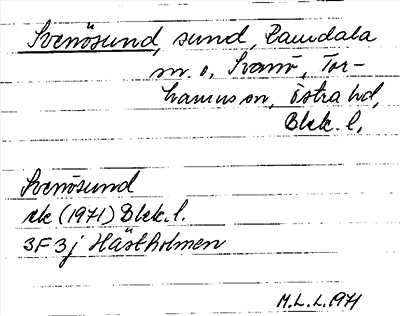 Svenösund, sund, Ramdala
sn. o, Svanö, Tor-
hamns sn, Östra hd,
Blek. l.
Svenösund
ek (1971) Blek. l.
3F 3j Hästholmen
M.L.L. 1971